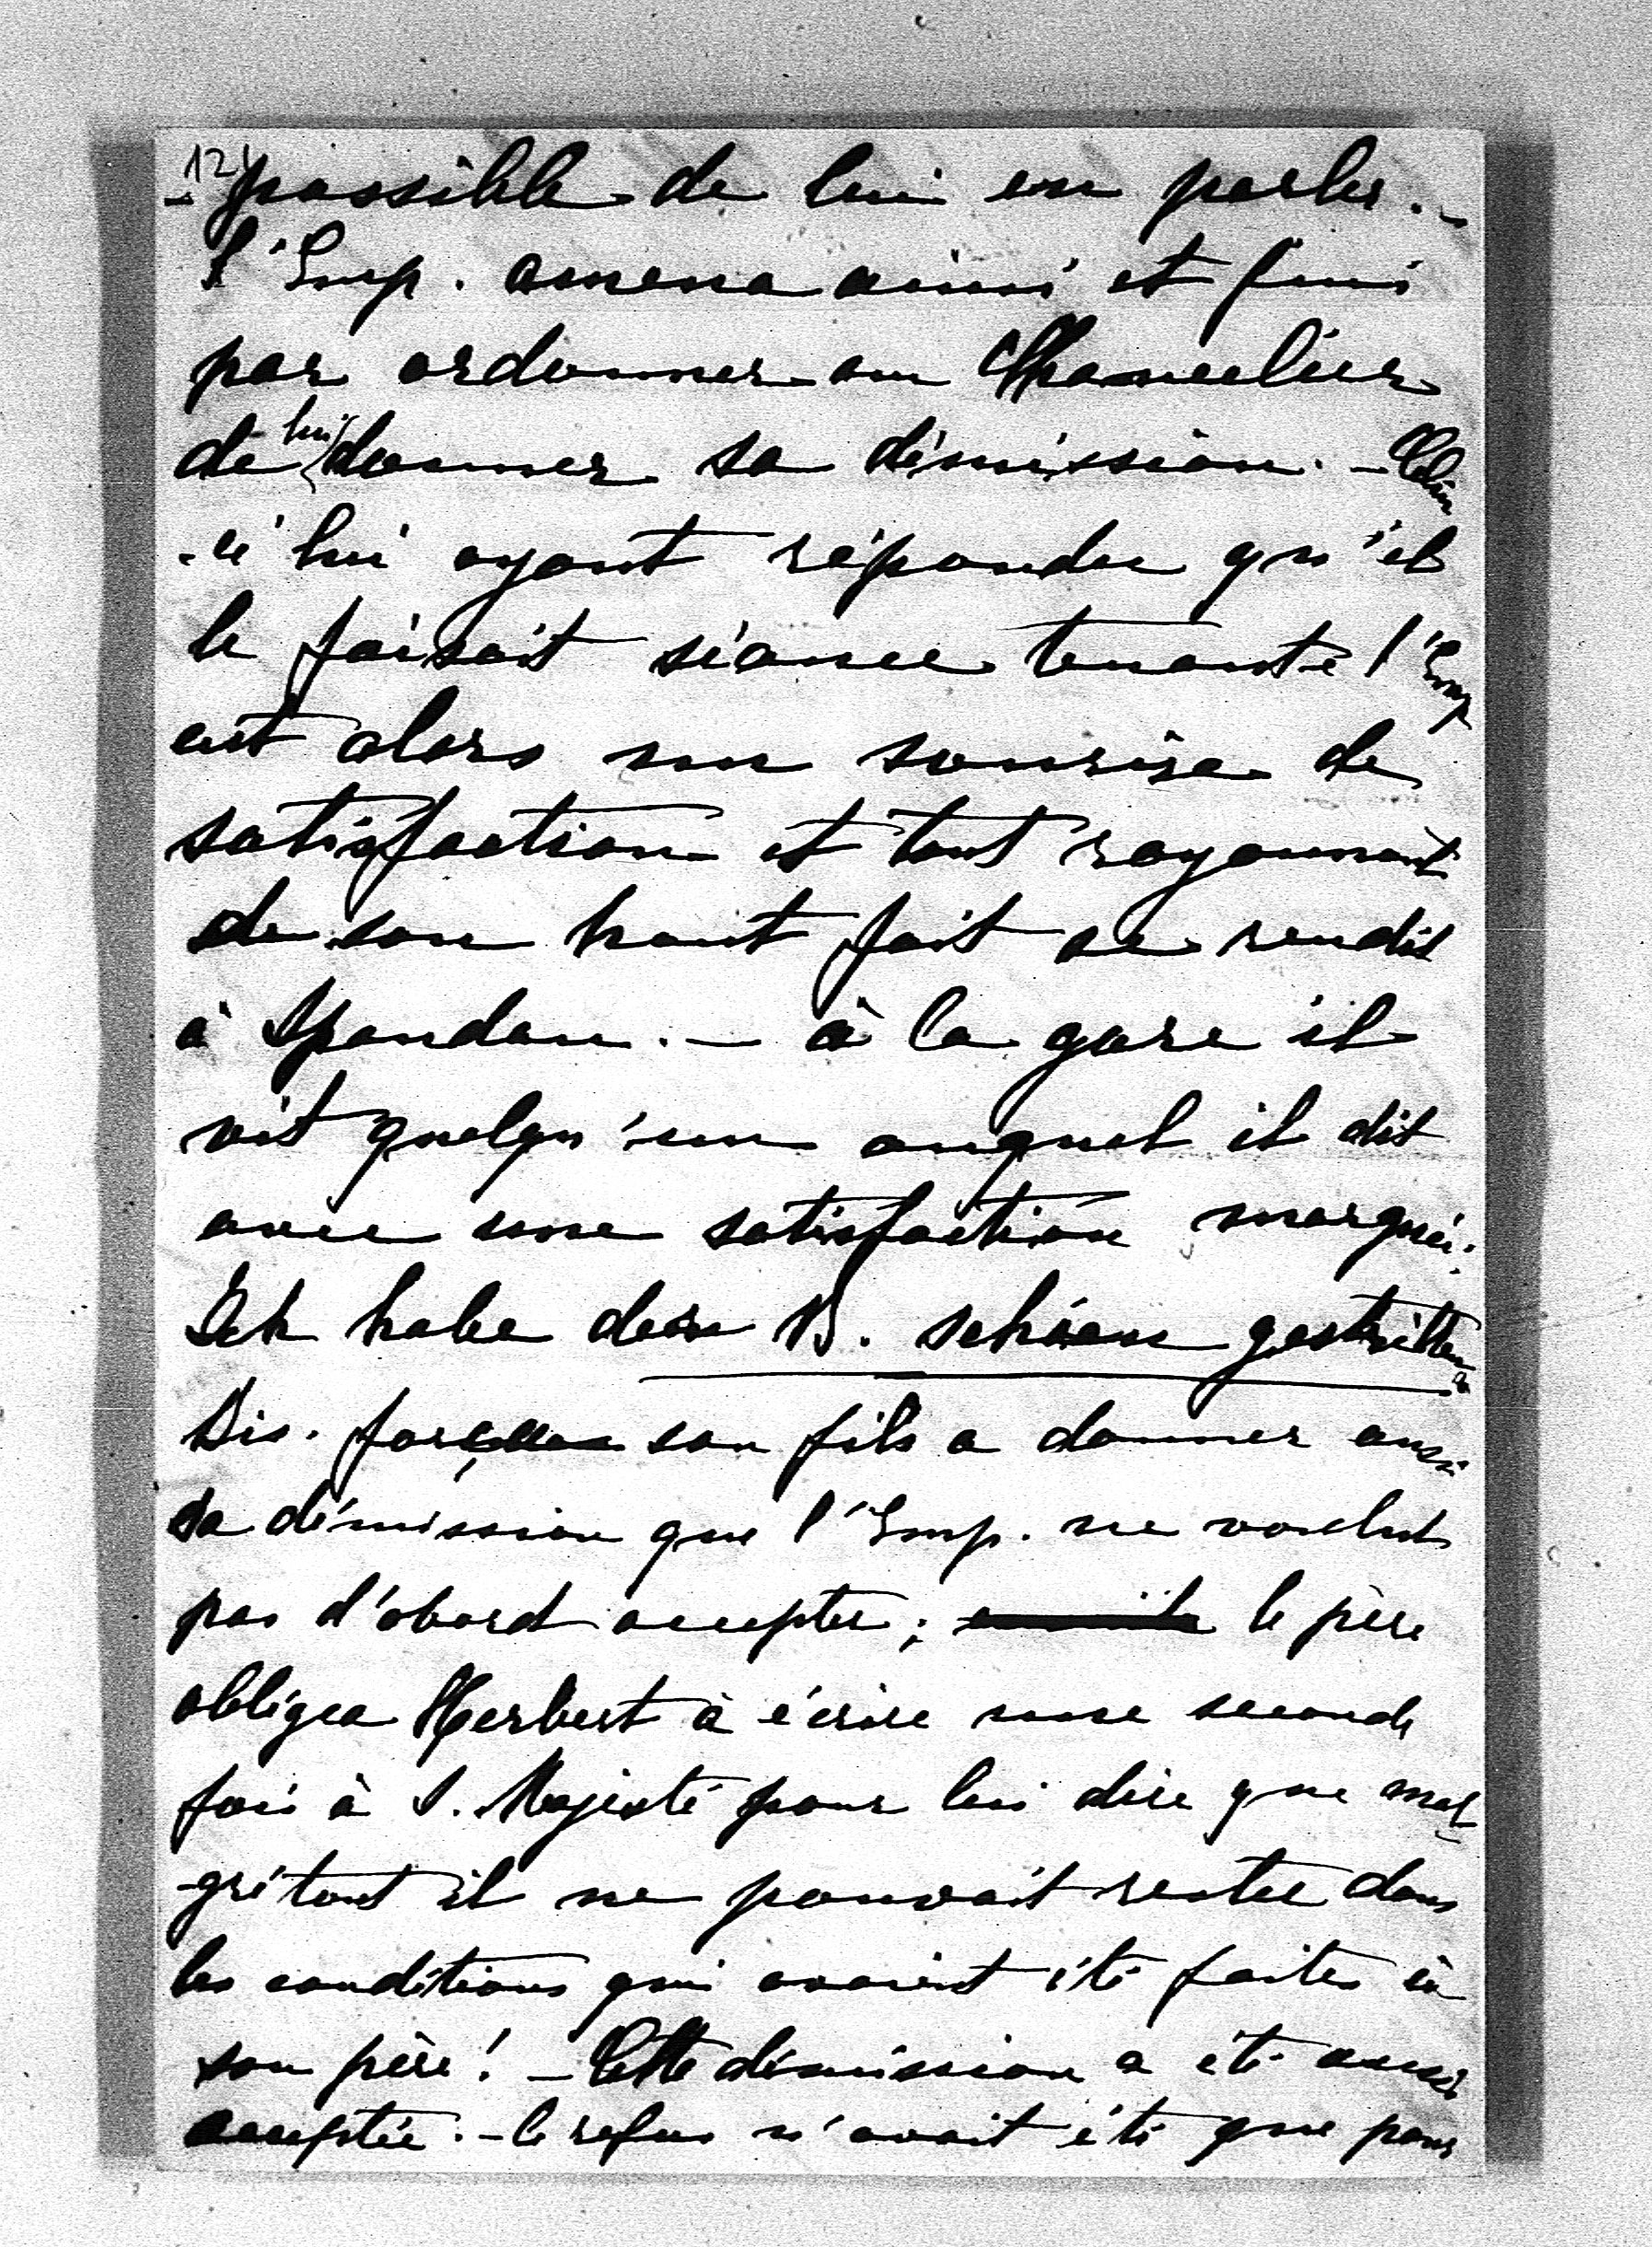 124
-possible de lui en parler. -
l'Emp. amena ainsi et fini
par ordonner au Chancelier
de lui donner sa démission. - Celui
-ci lui ayant répondu qu'il
le faisait séance tenante l'Emp
eut alors un sourire de
satisfaction et tout rayonnant
de son haut fait se rendit
à Spandau. - à la gare il
vit quelqu'un auquel il dit
avec une satisfaction marquée:
Ich habe den B. schön geschnitten
Bis. força son fils a donner aussi
sa démission que l'Emp. ne voulut
pas d'abord accepter; le père
obligea Herbert à écrire une seconde
fois à S. Majesté pour lui dire que mal
-gré tout il ne pouvait rester dans
les conditions qui avaient été faites à
son père! - Cette démission a été aussi
acceptée. - le refus n'avait été que pour